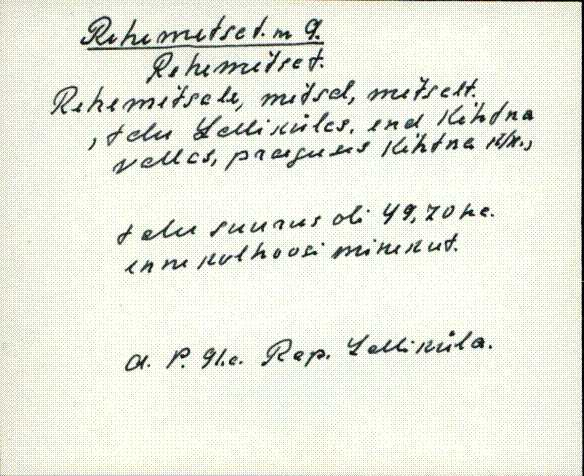 Rehemetset. m 9.
Rehemitset.
Rehemitsele, mitsel, mitselt.
, talu Lelliküles, end Kihtna
valles, praeguses Kihtna K/N.,
talu suurus oli 49,70 he.
enne kolhoosi minekut.
Rap. Lelliküla.